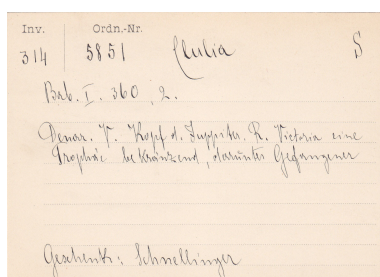 Inv. Ordn.-Nr.
314 5851 Clulia S
Bab. I. 360, 2.
Denar. V. Kopf d. Juppiter. R. Victoria eine
Trophäe bekränzend, darunter Gefangener
Geschenk: Schnellinger